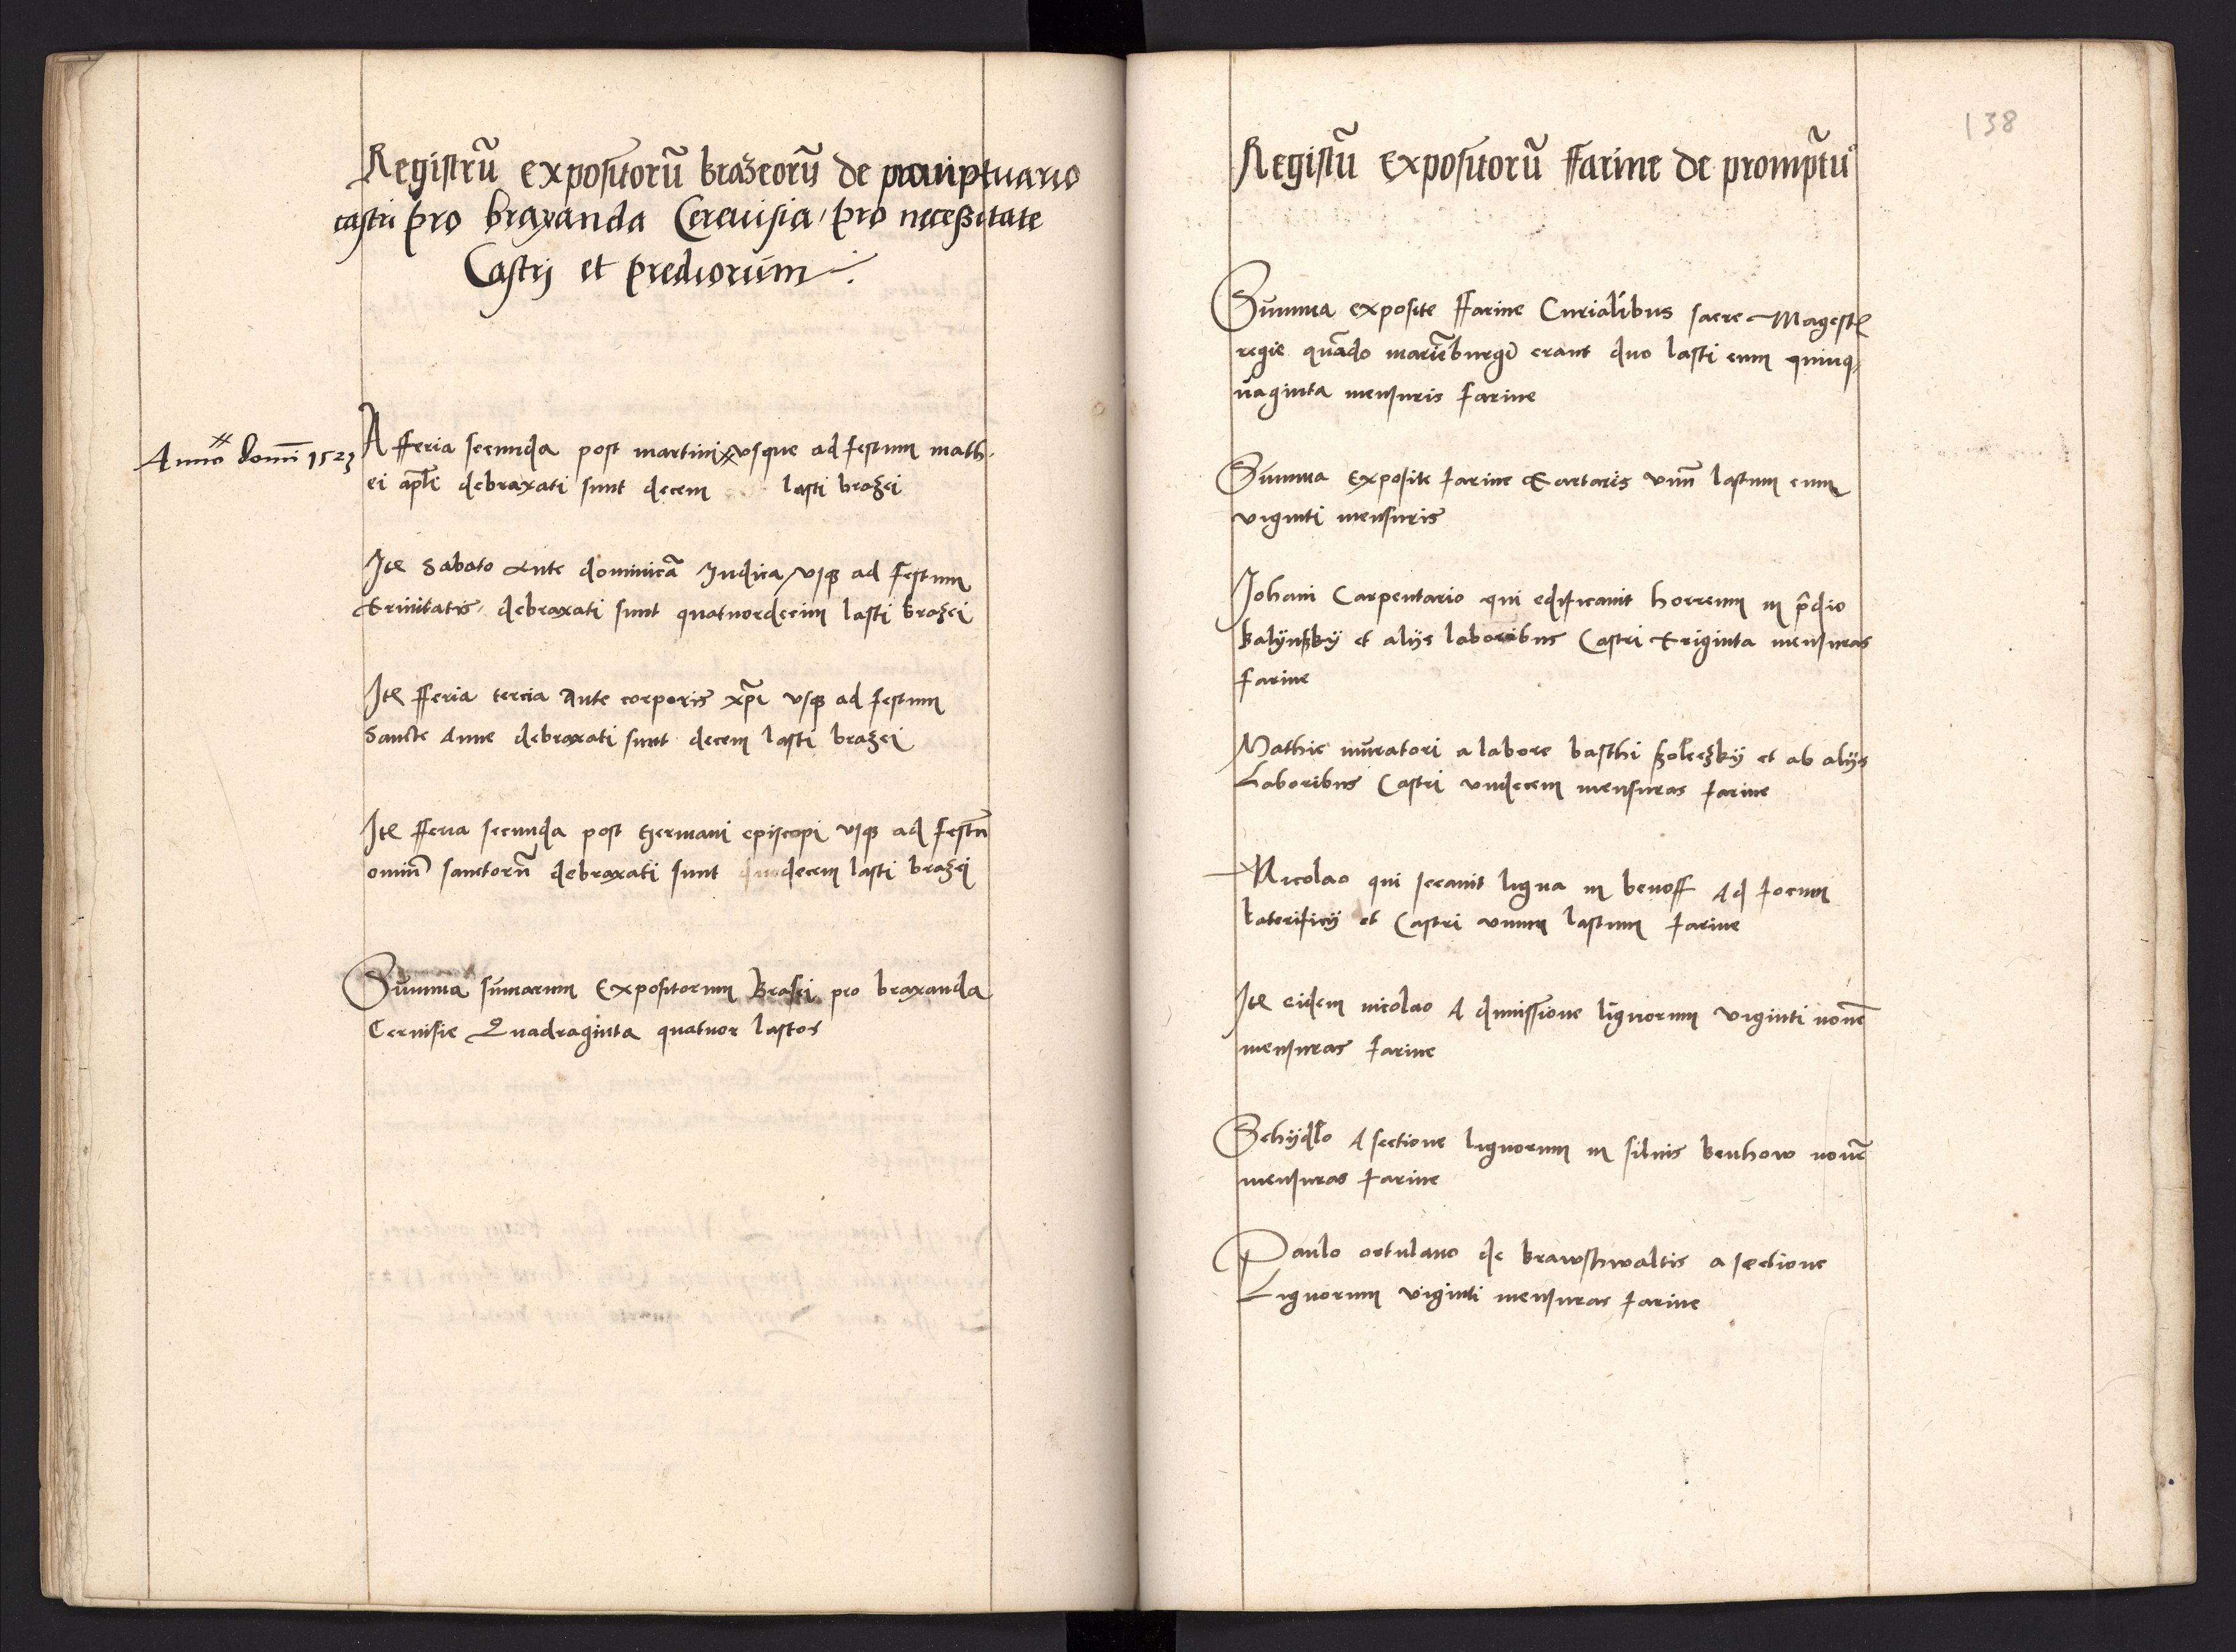 Registrũ expositorũ brazeorũ de promptuario
castri pro braxanda Cereuisia, pro necessitate
Castrj et prediorum
Anno domĩ 1523
A fferia secunda post martini vsque ad festum math-
ei apli debraxati sunt decem lasti brazei
Itẽ Sabato Ante dominicã Iudica, vsqꝫ ad festum
trinitatis, debraxati sunt quatuordecim lasti brazei
Itẽ fferia tercia Ante corporis xp̃i vsqꝫ ad festum
Sancte Anne debraxati sunt decem lasti brazei
Itẽ fferia secunda post Germani episcopi vsqꝫ ad festũ
omniũ sanctorũ debraxati sunt duodecem lasti brazei
Summa sumarum Expositorum Brasei pro braxanda
Ceruisie Quadraginta quatuor lastos
138
Registrũ expositorũ ffarine de promptu
Summa exposite ffarine Curialibus sacre Magestẽ
regie quãdo mariẽburgi erant duo lasti cum quinq-
uaginta mensuris farine
Summa exposite farine tartaris vnũ lastum cum
viginti mensuris
Johani Carpentario qui edificauit horreum in p̃dio
kalynsky et alijs laboribus Castri triginta mensuras
farine
Mathie muratori a labore basthi szoleczky et ab alijs
Laboribus Castri vndecem mensuras farine
Nicolao qui secauit ligna in benoff Ad focum
laterificij et Castri vnum lastum farine
Itẽ eidem nicolao A dimissione lignorum viginti nouẽ
mensuras farine
Schydlo A sectione lignorum in siluis benhow nouẽ
mensuras farine
Paulo ortulano de brawschwaltis a sectione
Lignorum viginti mensuras farine